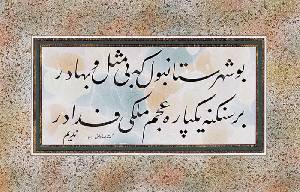 بو شهر ستانبول که بی مثل و بهادر
بر سنکنه یکپاره عجم ملکی فدادر
ندیم